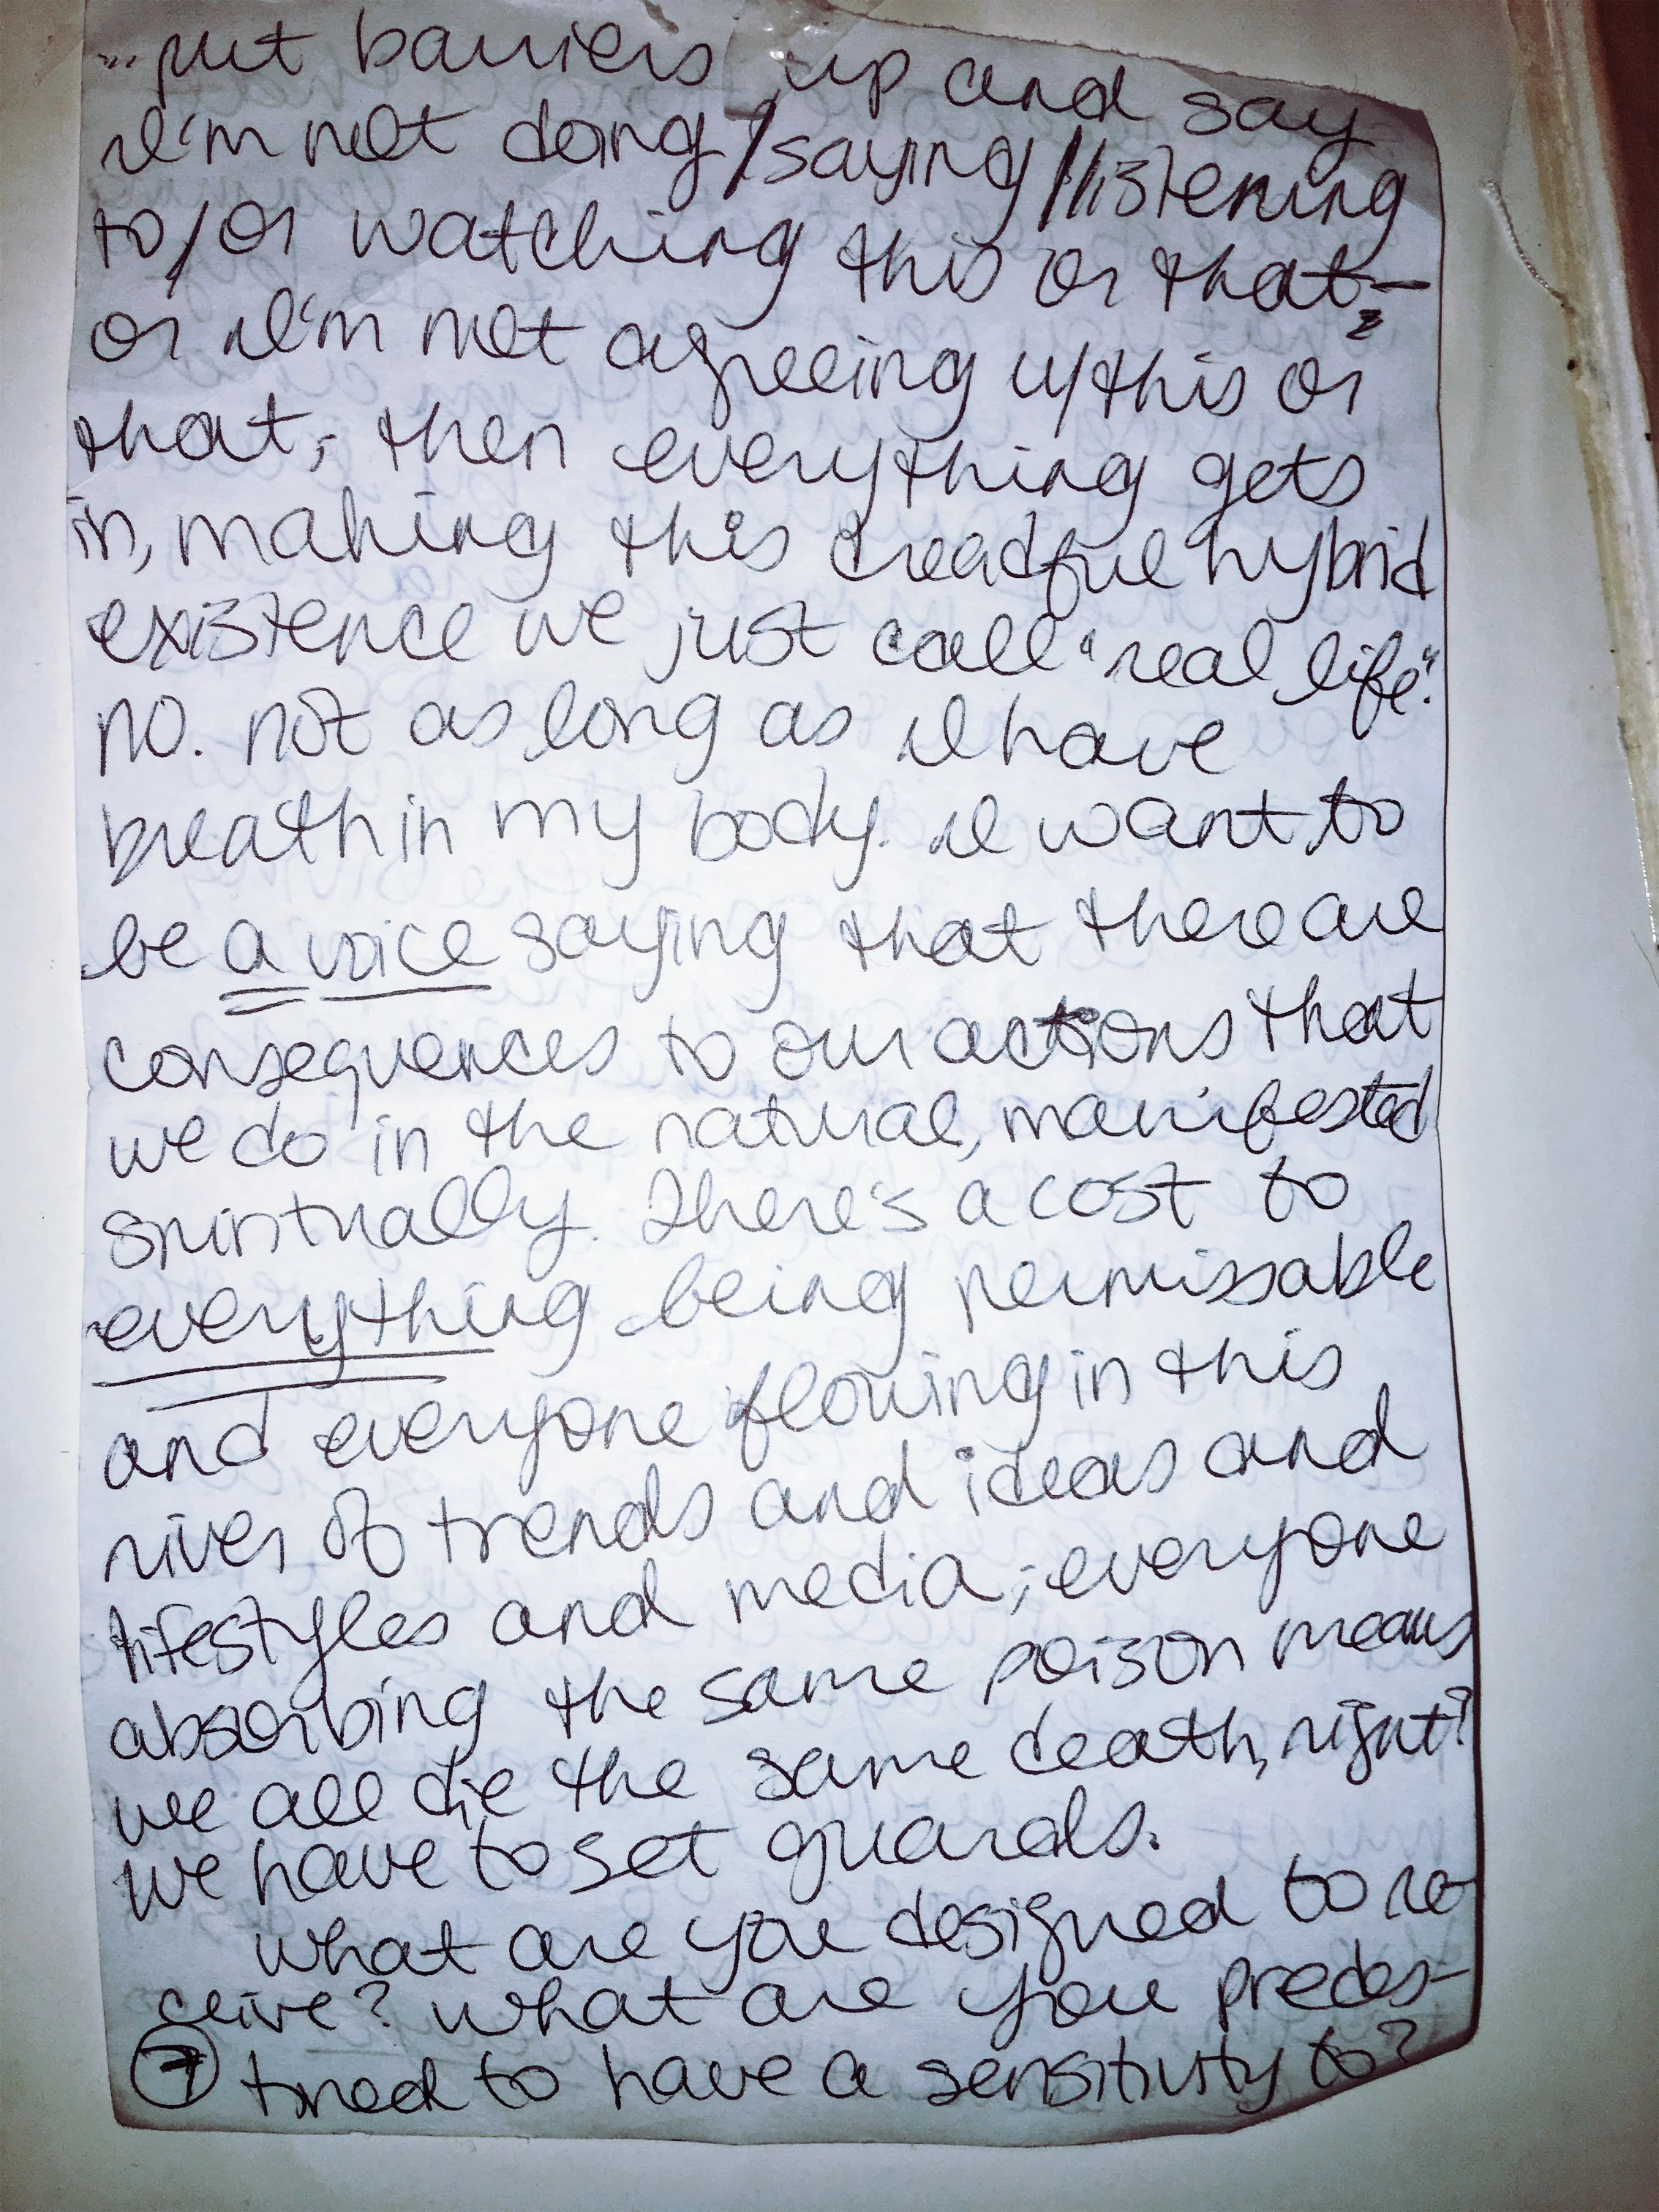 ...put barriers up and say
I'm not doing/saying/listening
to/or watching this or that,-
or I'm not agreeing w/this or
that, then everything gets
in, making this dreadful hybrid
existence we just call "real life".
no. not as long as I have
breath in my body. I want to
be a voice saying that there are
consequences to our actions that
we do in the natural, manifested
spiritually. There's a cost to
everything being permissable
and everyone flowing in this
river of trends and ideas and
lifestyles and media; everyone
absorbing the same poison means
we all die the same death, right?
we have to set guards.
what are you designed to re-
ceive? what are you predes-
7 tined to have a sensitivity to?